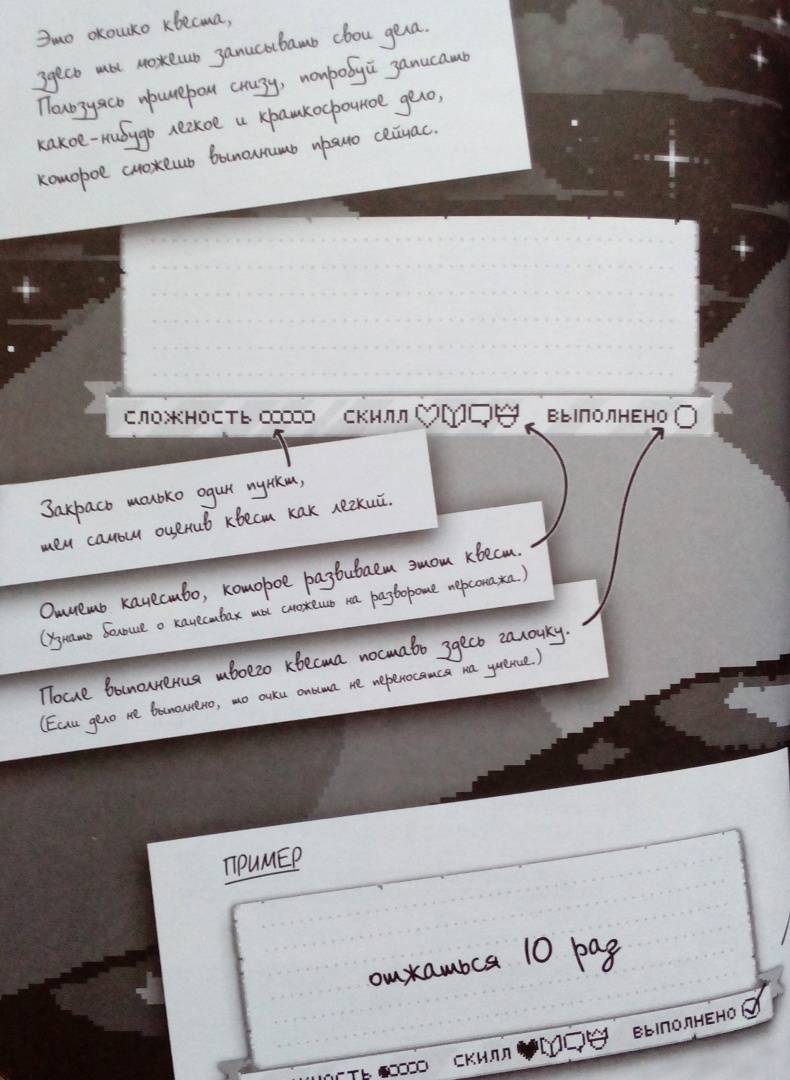 Это окошко квеста,
здесь ты можешь записывать свои дела.
Пользуясь примером снизу, попробуй записать
какое-нибудь легкое и краткосрочное дело,
которое сможешь выполнить прямо сейчас.
СЛОЖНОСТЬ СКИЛЛ ВЫПОЛНЕНО
Закрась только один пункт,
тем самым оценив квест как легкий.
Отметь качество, которое развивает этот квест.
(Узнать больше о качествах ты сможешь на развороте персонажа.)
После выполнения твоего квеста поставь здесь галочку.
(Если дело не выполнено, то очки опыта не переносятся на умение.)
ПРИМЕР
отжаться 10 раз
ЖНОСТЬ СКИЛЛ ВЫПОЛНЕНО